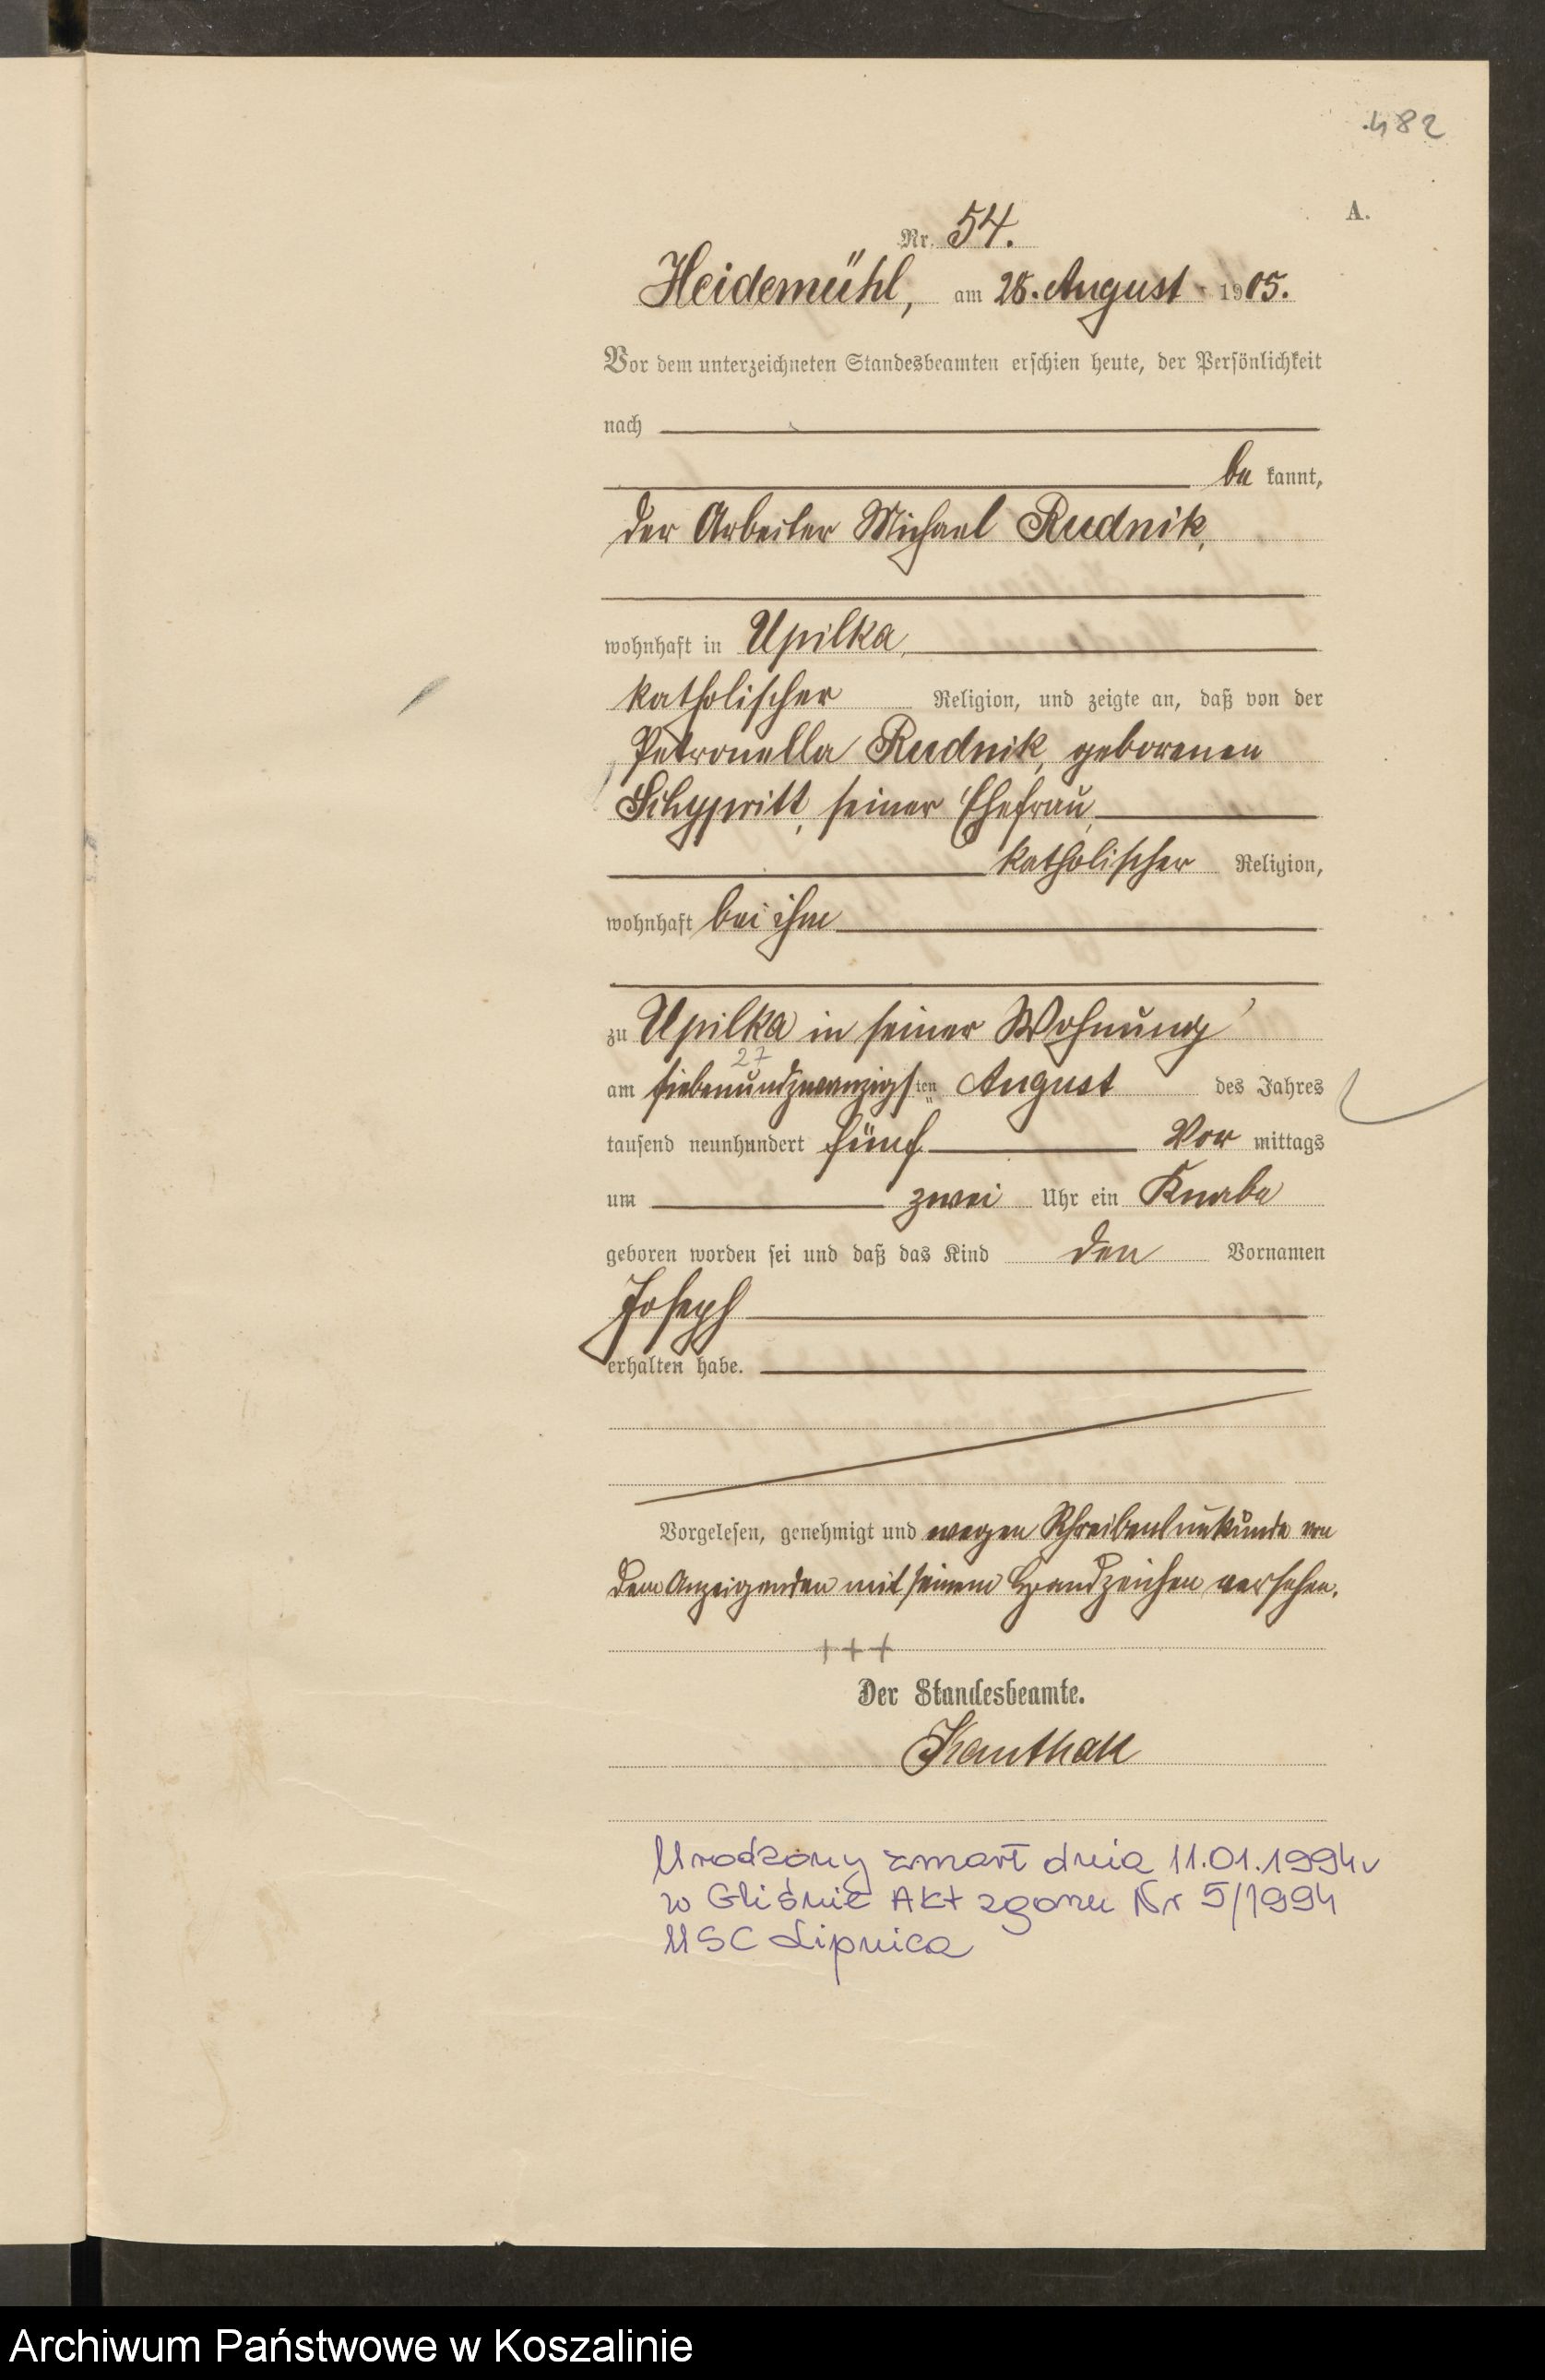 482
A.
Nr. 54.
Heidemühl, am 28. August 1905.
Vor dem unterzeichneten Standesbeamten erschien heute, der Persönlichkeit
nach
be kannt,
der Arbeiter Michael Rudnik,
wohnhaft in Upilka,
katholischer Religion, und zeigte an, daß von der
Petronella Rudnik, geborenen
seiner Ehefrau,
katholischer Religion,
wohnhaft bei ihm
zu Upilka in seiner Wohnung
27
am siebenundzwanzigsten August des Jahres
tausend neunhundert fünf Vor mittags
um zwei Uhr ein Knabe
geboren worden sei und daß das Kind den Vornamen
Joseph
erhalten habe.
Vorgelesen, genehmigt und wegen Schreibensunkunde von
dem Anzeigenden mit seinem Handzeichen versehen.
+++
Der Standesbeamte.
Kauthak
Urodzony zmarł dnia 11.01.1994r
w Gliśnie Akt zgonu Nr 5/1994
USC Lipnica
Archiwum Państwowe w Koszalinie